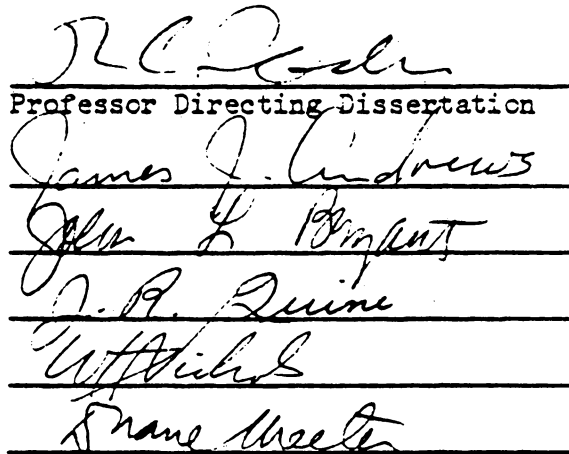 R C Lacher
Professor Directing Dissertation
James J. Andrews
John L Bryant
J. R. Quine
W Nichols
Duane Meeter